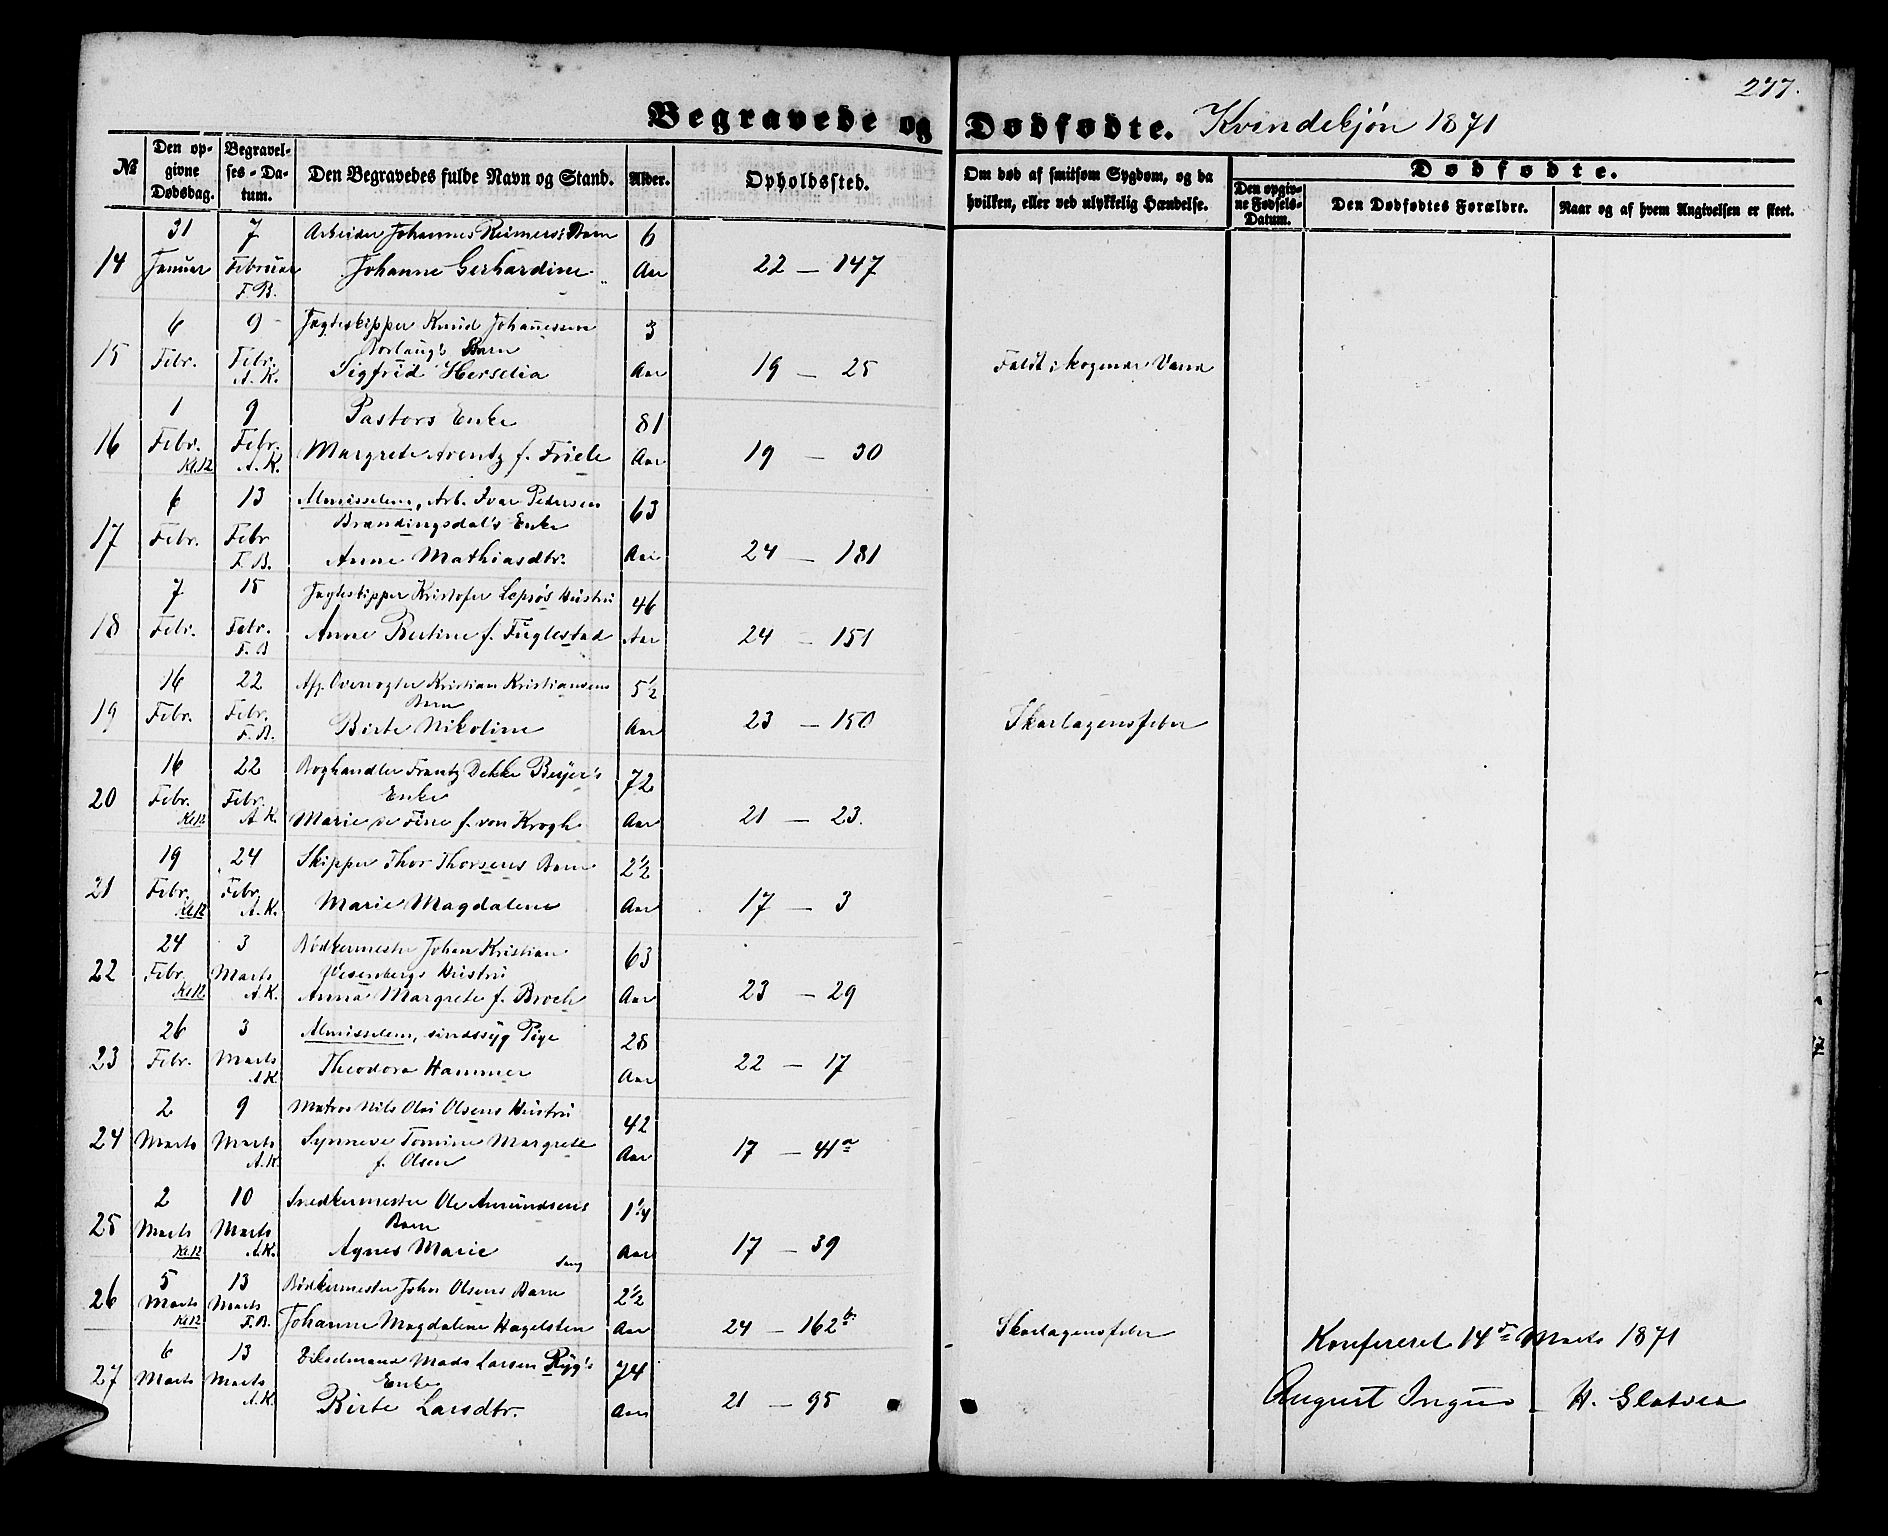 277.
Begravede og Dødfødte. Kvindekjøn 1871
№
Den opgivne Dødsdag.
Begravelses-Datum.
Den Begravedes fulde Navn og Stand.
Alder.
Opholdssted.
Om død af smitsom Sygdom, og da hvilken, eller ved ulykkelig Hændelse.
Dødfødte.
Den opgivne Fødsels-Datum.
Den Dødfødtes Forældre.
Naar og af hvem Angivelsen er skeet.
14 31 Januar 7 Februar F. B. Arbeider Johannes Reimers's Barn 6 Aar
Johanne Gerhardine 22 — 147
15 6 Febr. 9 Febr. A. K. Jagteskipper Knud Johannessen 3 Aar
Barn
Sigfrid Herselia 19 — 25 Faldt i kogende Vand
16 1 Febr. Kl.12 9 Febr. A. K. Pastors Enke 81 Aar
Margrete Arentz f. Friele 19 — 30
17 6 Febr. 13 Febr F. B. Almisselem, Arb. Ivar Pedersen 63 Aar
Brændingsdal's Enke
Anne Mathiasdtr. 24 — 181
18 7 Febr. 15 Febr. F. B Jagteskipper Kristofer Lepsø's Hustru 46 Aar
Anne Bertine f. Fuglestad 24 — 151
19 16 Febr. 22 Febr. F. B. Afg. Kristian Kristiansens 5½ Aar
Barn
Birte Nikoline 23 — 150 Skarlagensfeber
20 16 Febr. Kl.12 22 Febr. A. K. Boghandler Frantz Dekke Beyer's 72 Aar
Enke
Marie de Fine f. von Krogh 21 — 23.
21 19 Febr. Kl.12 24 Febr. A. K. Skipper Thor Thorsens Barn 2½ Aar
Marie Magdalene 17 — 3
22 24 Febr. Kl.12 3 Marts A. K. Bødkermester Johan Kristian 63 Aar
Wesenbergs Hustru
Anna Margrete f. Broch 23 — 29
23 26 Febr. 3 Marts A. K. Almisselem, sindssyg Pige 28 Aar
Theodora Hammer 22 — 17
24 2 Marts 9 Marts A. K. Matros Nils Olai Olsens Hustru 42 Aar
Synneve Tomine Margrete
f. Olsen 17 — 41a
25 2 Marts Kl.12 10 Marts A. K. Snedkermester Ole Amundsens 1¼ Aar
Barn
Agnes Marie 17 — 39
26 5 Marts Kl.12 13 Marts F. B. Bødkermester John Olsens Barn 2½ Aar
Johanne Magdalene Hagelsten 24 — 162b Skarlagensfeber
27 6 Marts 13 Marts A. K. Mads Larsen Ryg's 74 Aar
Enke
Birte Larsdtr. 21 — 95
Konfereret 14de Marts 1871
August